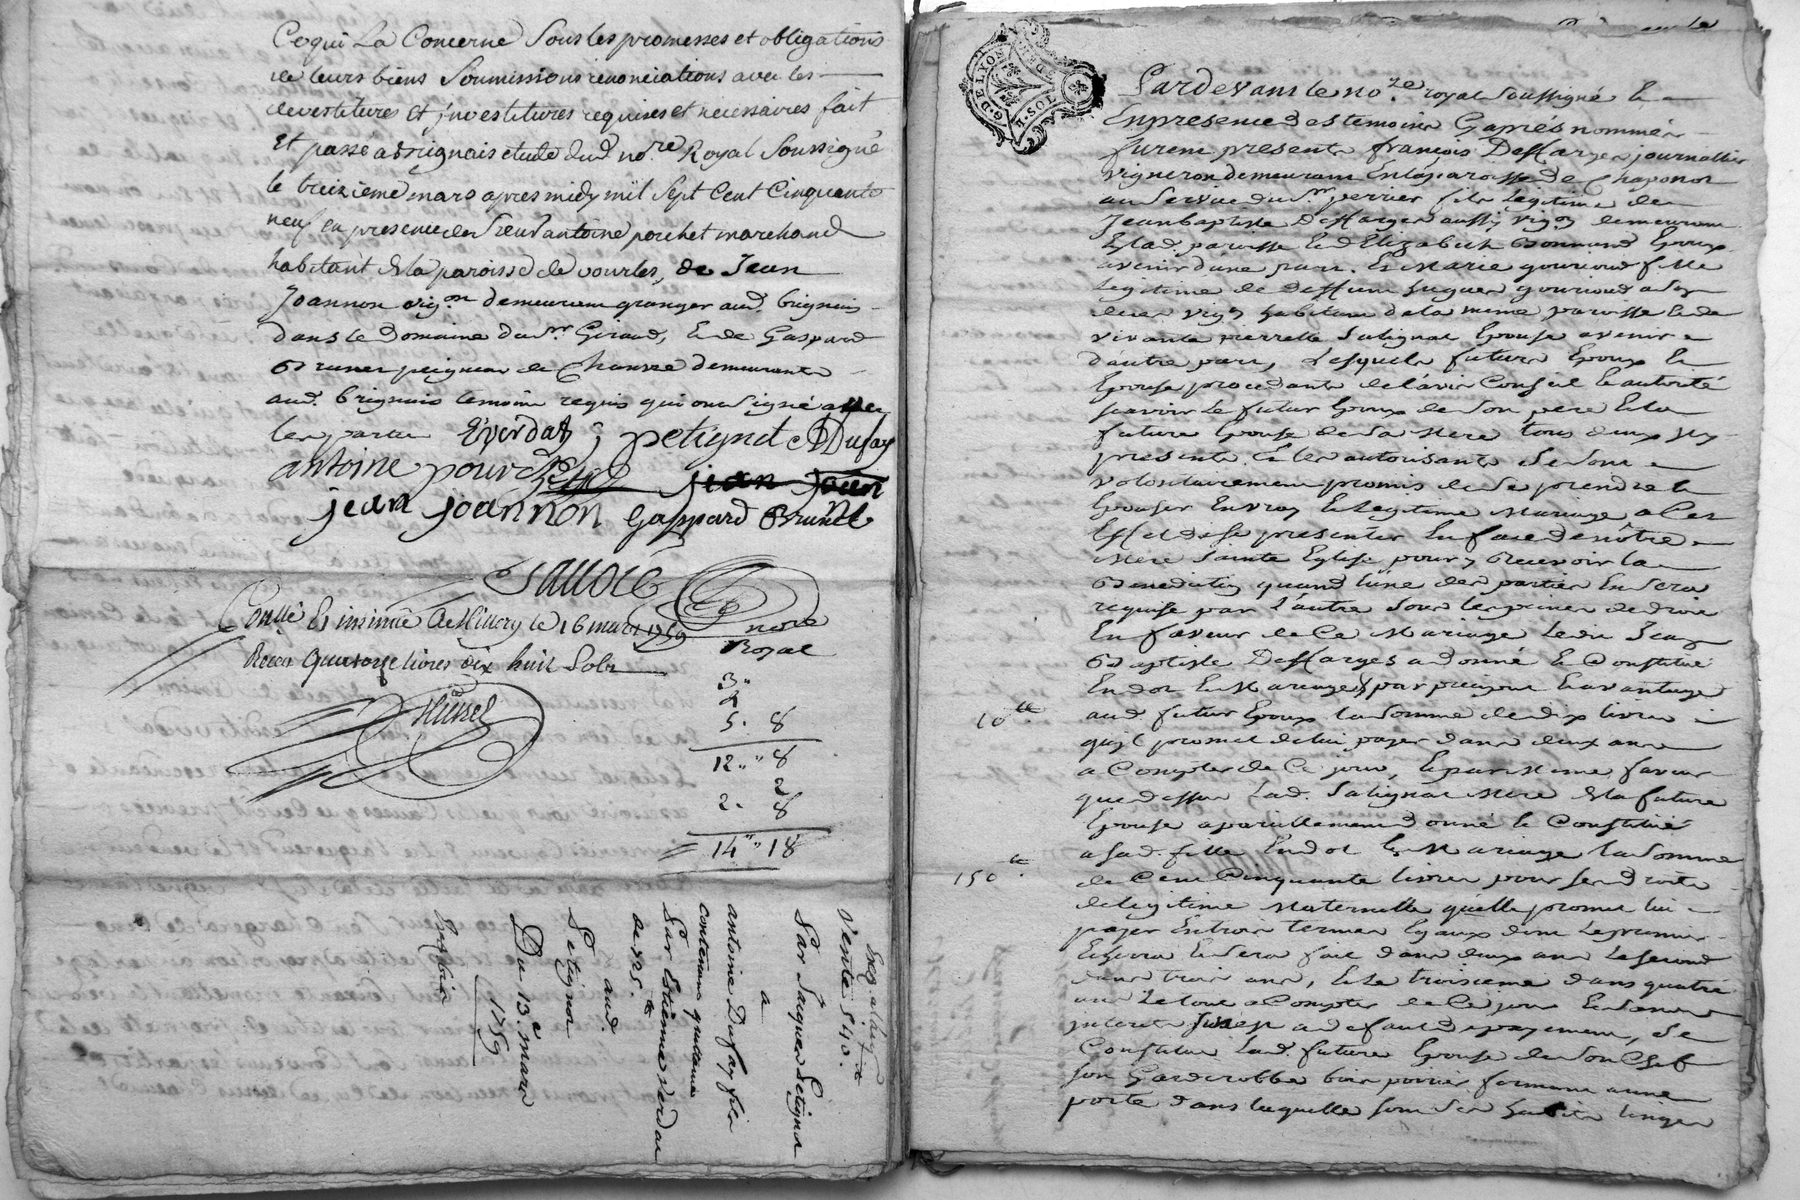 Ce qui La Concerne Sous les promesses et obligations
de leurs biens Soumissions renonciations avec les
devestitures Et jnvestitures requises et necessaires fait
Et passé a brignais etude dud no.re Royal Soussigné
le treizieme mars apres midy mil Sept Cent Cinquante
neuf en presence de Sieur antoine porchet marchand
habitant de la paroisse de vourles, de Jean
Joannon vig.on demeurant granger aud. brignais
dans le domaine du Sr. Giraud, et de Gaspard
Brunet peigneur de Chanvre demeurant
aud. brignais temoins requis qui ont signé avec
les parties Everdat; petignet ADufay
antoine pourchet jean Joan
jean joannon Gaspard Brunet
nore
Royal
Conllé Et insinué A Millery le 16 mars 1759
Recu Quatorze livres dix huit Sols
3"
5. 8
12." 8
2
2. 8
14"" 18
Vente 540.tt
Par Jacques Petignat
a
antoine Dufay fils
contenant quittance
Par Estienne Verdat
de 425.tt
aud.
Petignat
Du 13e mars
1759
G. DE LYON
II. SOL
Pardevant le no.re royal soussigné et
En presence des temoins cy aprés nommés
furent presents françois Deffarges journallier
vigneron demeurant En la paroisse de Chaponot
au service du Sr. perrier fils legitime de
Jean baptiste Deffarges aussy vig.on demeurant
En lad. paroisse et d'Elizabeth Bonnand Epoux
avenir d'une part. Et Marie gouriond fille
legitime de deffunt hugues gouriond a son
deces vig.on habitant de la meme paroisse et de
vivante pierrette Salignat Epouse avenir
d'autre part, Lesquels futurs Epoux et
Epouse procedants de l'avis Conseil et autorité
scavoir le futur Epoux de son pere et la
future Epouse de sa Mere tous deux icy
presents et les autorisants se sont
volontairement promis de se prendre et
Epouser En vray et legitime Mariage a cet
Effet de se presenter En face de nôtre
Mere Sainte Eglise pour y recevoir la
Benediction quand l'une des parties En sera
requise par l'autre sous les peines de droit
En faveur de ce Mariage ledit Jean
Baptiste Deffarges a donné et Constitué
En dot et Mariage par preciput et avantage
10.tt aud. futur Epoux la somme de dix livres
qu'il promet de lui payer dans deux ans
a Compter de Ce jour, Et par Meme faveur
que dessus Lad. Salignat Mere de la future
Epouse a pareillement donné et Constitué
a sad. fille En dot et Mariage la somme
150.tt de Cent Cinquante livres pour ses droits
de legitime Maternelle qu'elle promet lui
payer En trois termes Egaux dont le premier
Echerra et sera fait dans deux ans le second
dans trois ans, Et le troisieme dans quatre
ans Le tout a Compter de Ce jour Et sans
interets jusqu'a defaut de payement, Se
Constitue Lad. future Epouse de son Chef
son Garderobbe bois poirier fermant a une
porte dans laquelle sont ses habits linges